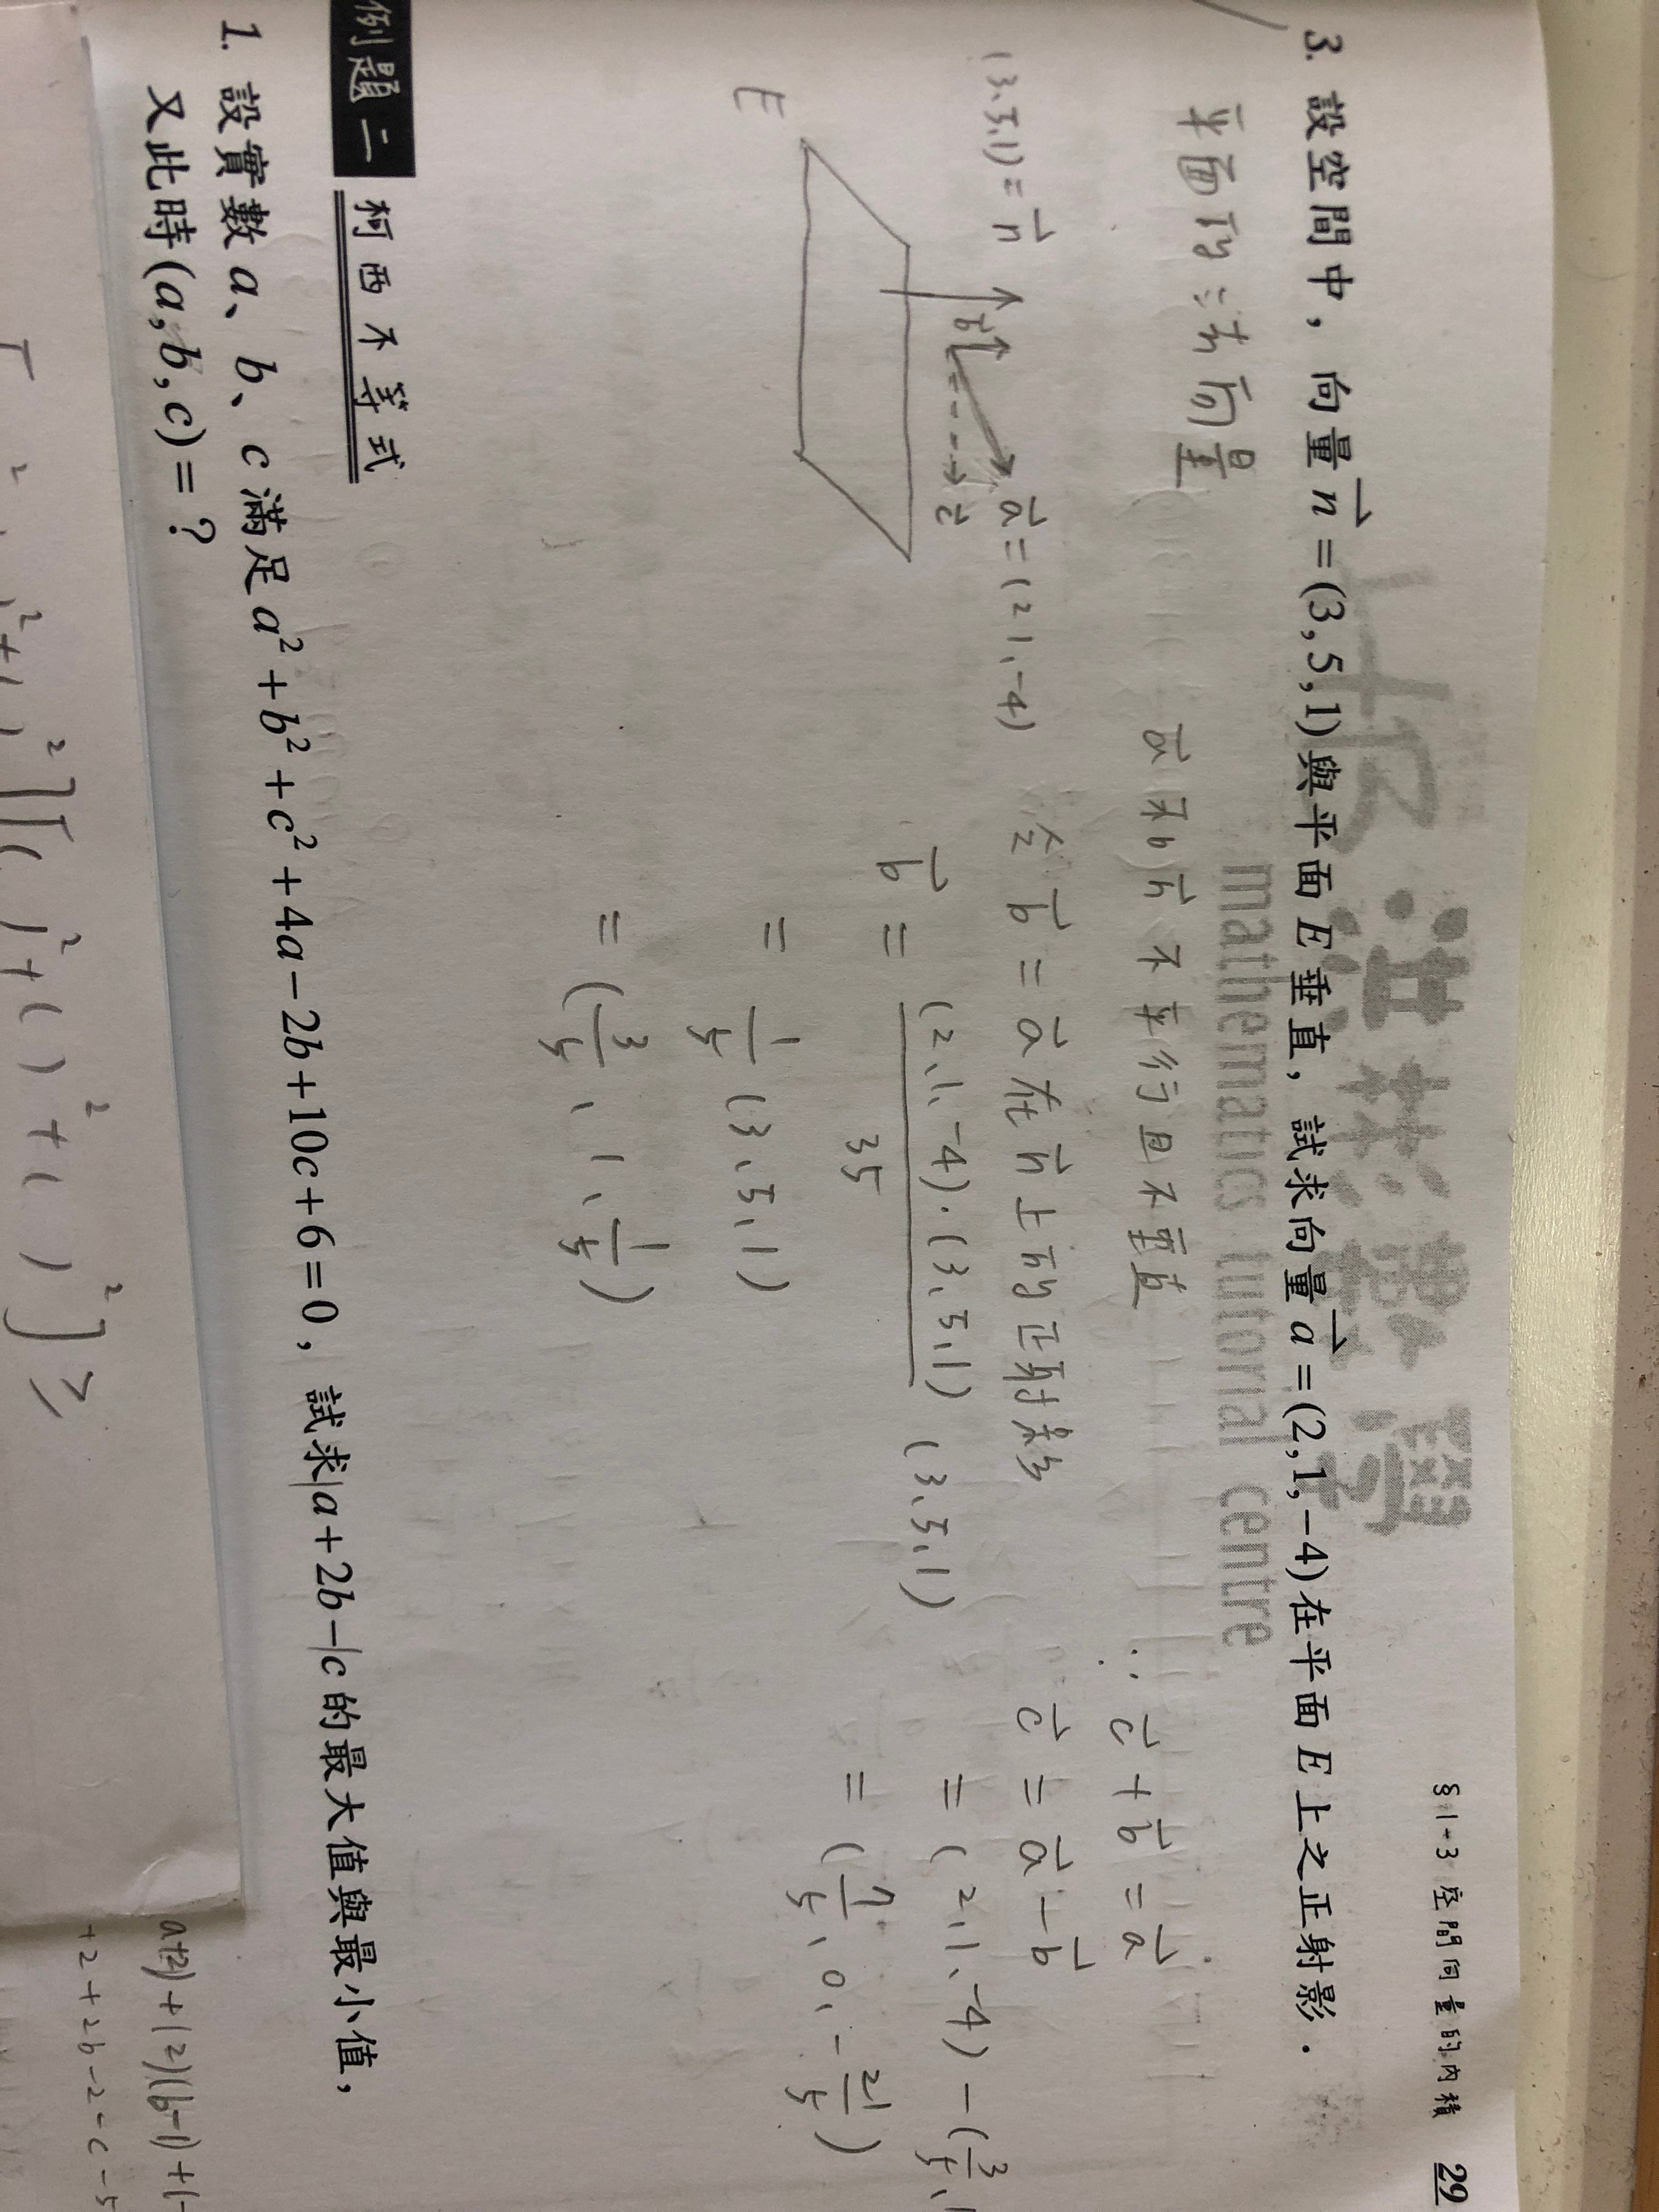 §1-3 空間向量的內積 29
mathematics tutorial centre
3. 設空間中，向量n⃗=(3,5,1)與平面E垂直，試求向量a⃗=(2,1,-4)在平面E上之正射影．
平面的法向量
a⃗和n⃗不平行且不垂直
∵ c⃗+b⃗=a⃗
(3、5、1)=n⃗
b⃗
c⃗
a⃗=(2、1、-4)
E
令b⃗=a⃗在n⃗上的正射影
b⃗ = (2、1、-4)·(3、5、1)/35 (3、5、1)
= 1/5 (3、5、1)
= (3/5、1、1/5)
c⃗ = a⃗-b⃗
= (2、1、-4)-(3/5、1
= (7/5、0、-21/5)
例題二 柯西不等式
1. 設實數a、b、c滿足a²+b²+c²+4a-2b+10c+6=0，試求a+2b-c的最大值與最小值，
又此時(a,b,c)=?
a+2)+(2)(b-1)+(-
+2+2b-2-c-5
²+( )²][( )²+( )²+( )²] ≥